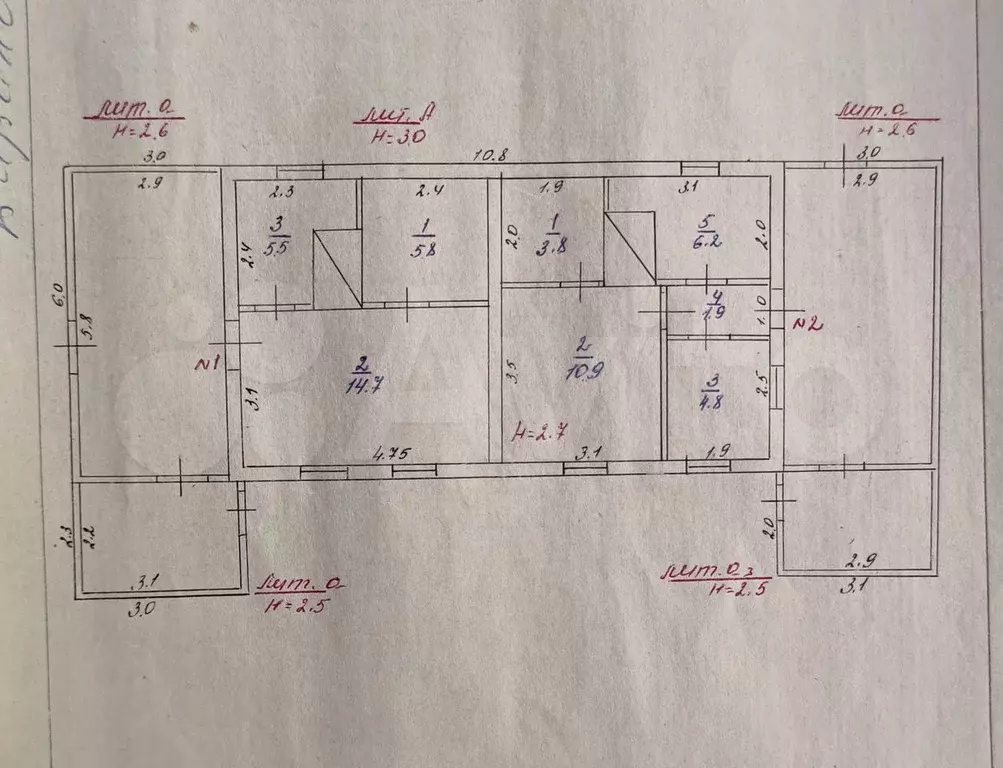 лит. а
H=2.6
лит. А
H=3.0
лит. а
H=2.6
3.0
10.8
3.0
2.9
2.3
2.4
1.9
3.1
2.9
3
5.5
2.4
1
5.8
2.0
1
3.8
5
6.2
2.0
6.0
5.8
4
1.9
1.0
N1
N2
3.1
2
14.7
3.5
2
10.9
3
4.8
2.5
H=2.7
4.75
3.1
1.9
2.3
2.2
2.0
3.1
3.0
лит. а
H=2.5
лит. а3
H=2.5
2.9
3.1